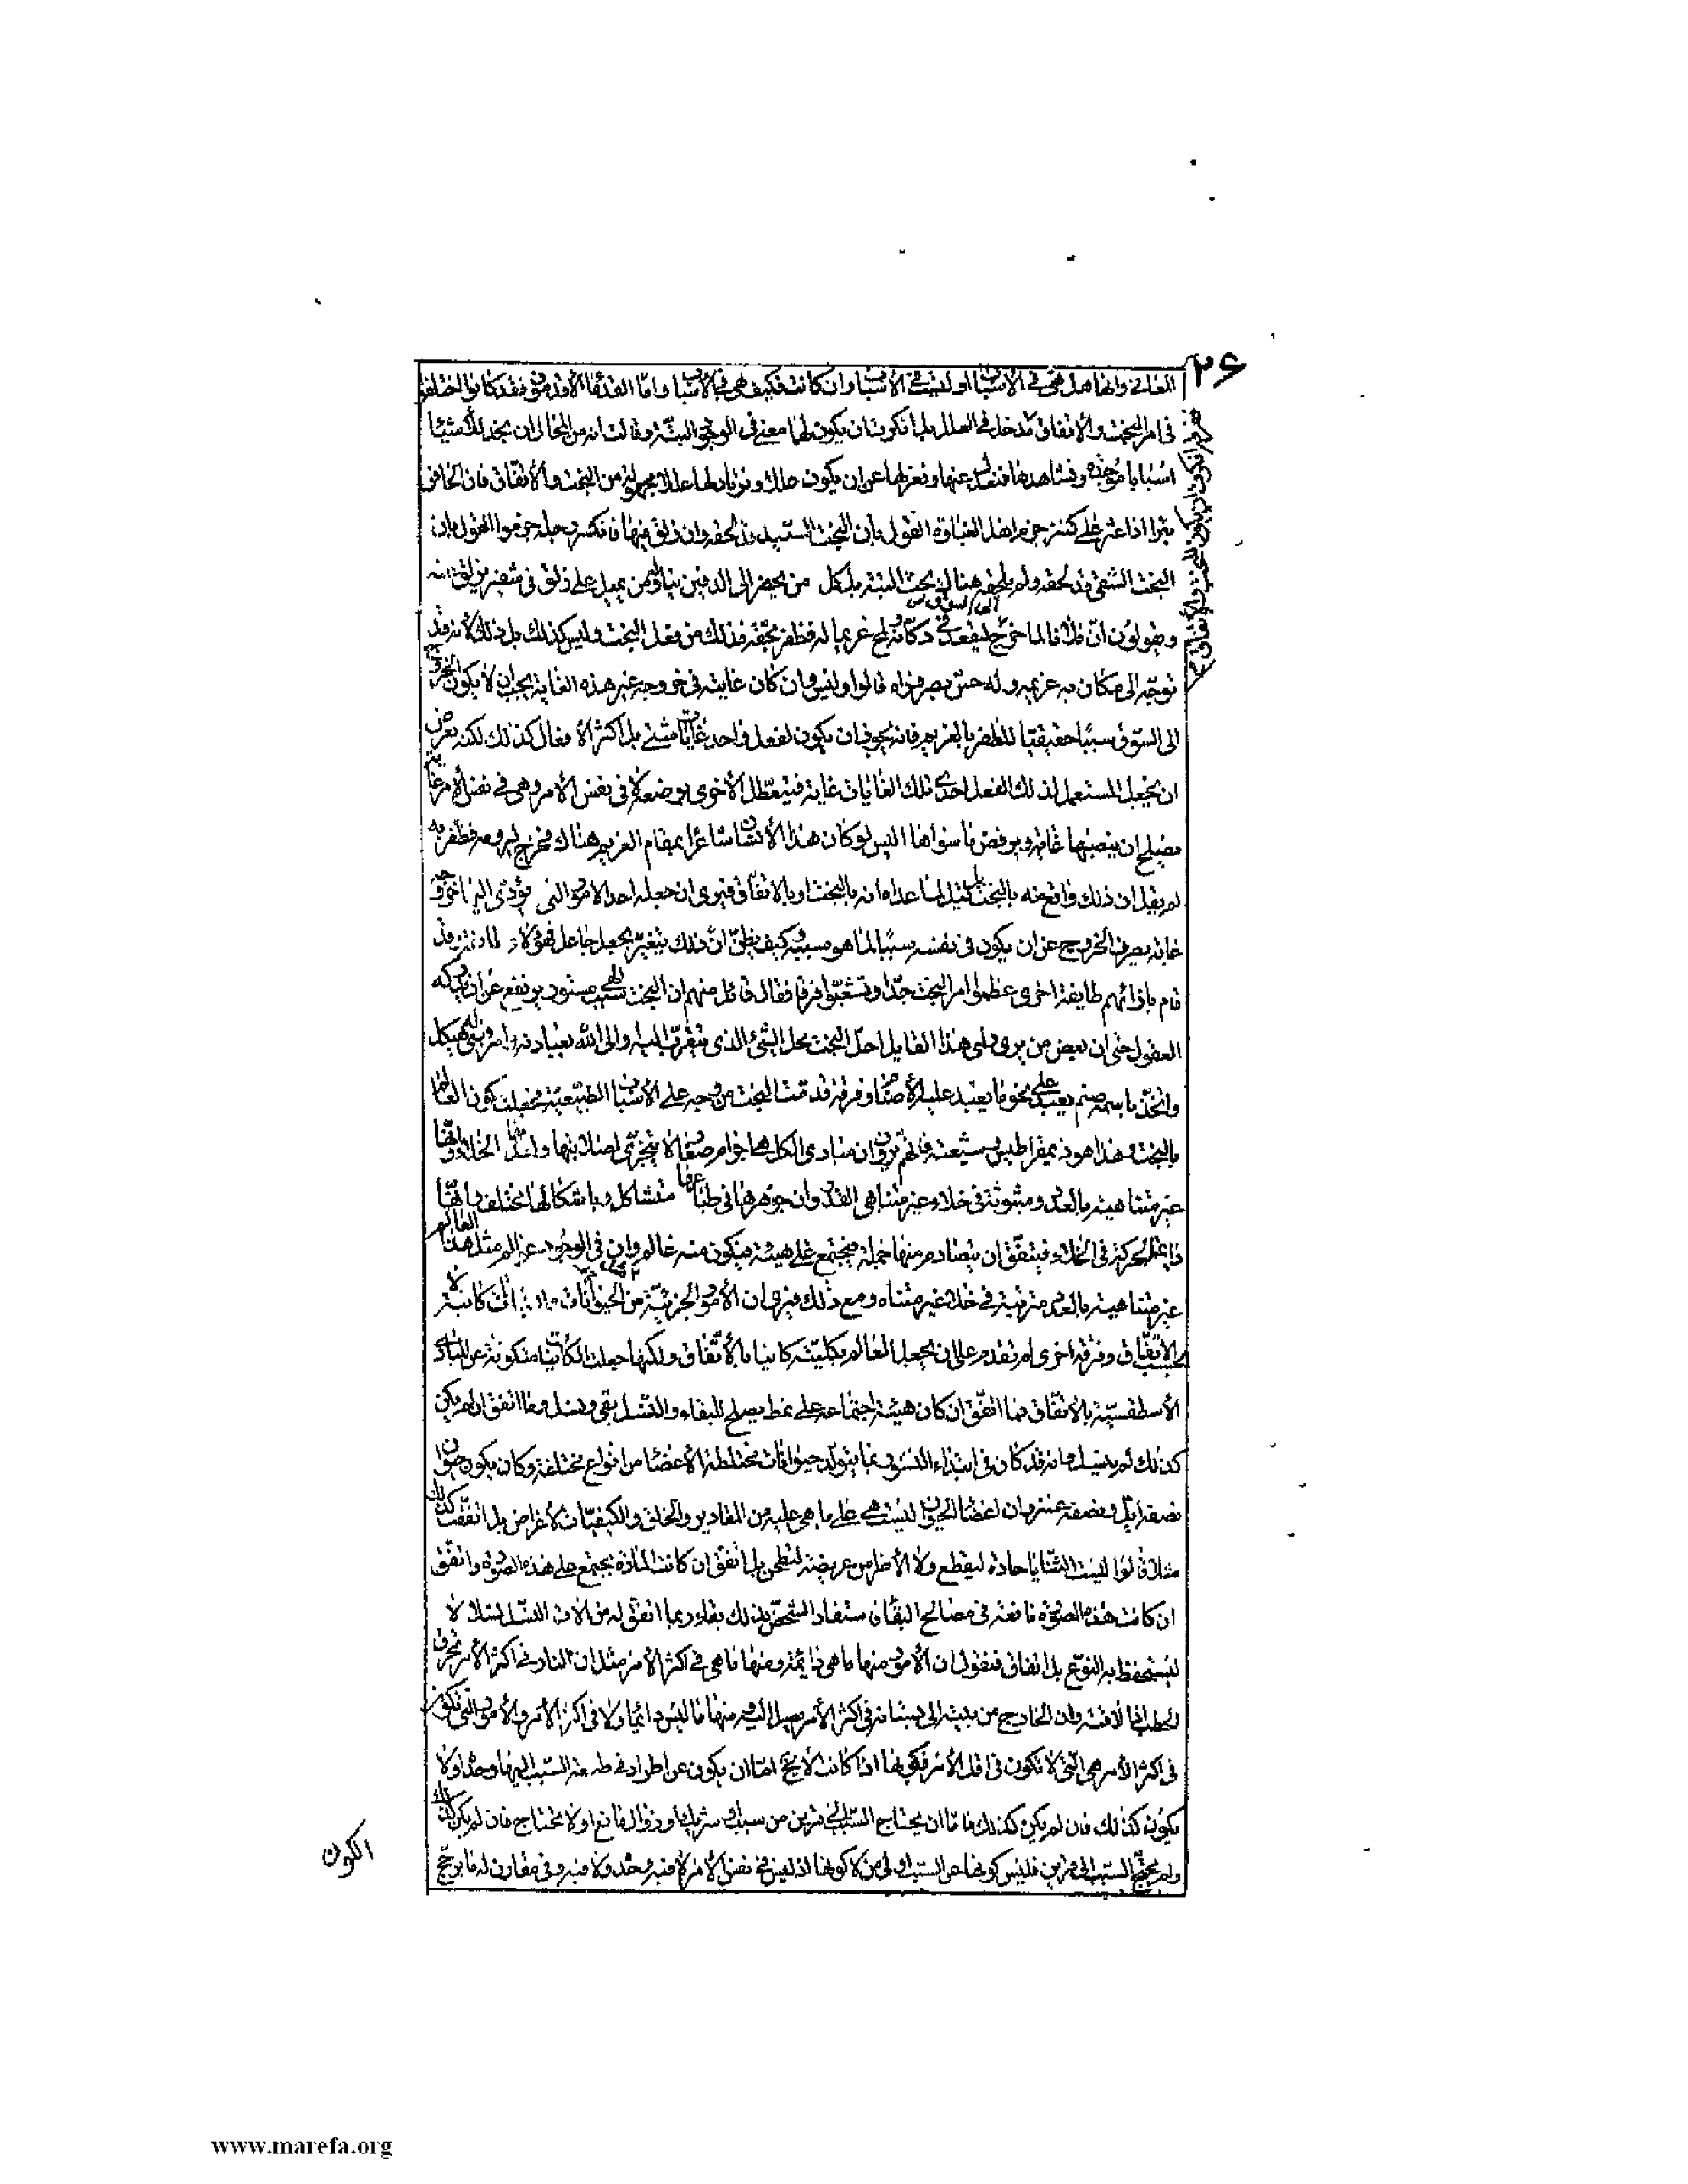 ٢۶
الغائى وانها هل هى فى الأسباب او ليست فى الأسباب وان كانت فكيف هى فى الأسباب واما القدماء الأقدمون فقد كانوا اختلفوا
فى امر البخت والاتفاق
مدخل فى العلل بل انكرت ان يكون لها معنى فى الوجود البتة وقالت انه من المحال ان نجد للأشياء
اسبابا موجبة ونشاهدها فنعدل عنها ونعزلها عن ان يكون عللا ونرتاد لها عللا مجهولة من البخت والاتفاق فان الحافر
بئرا اذا عثر على كنز جزم اهل الغباوة القول بأن البخت السعيد قد لحقه وان زلق فيها فانكسر رجله جزموا القول بان
البخت الشقى قد لحقه ولم يلحقه هناك بخت البتة بل كل من يحفر الى الدفين يناله ومن يميل على زلق فى شفير يزلق عنه
ويقولون ان فلانا لما خرج ليقعد فى دكانه لمح غريما له فظفر بحقه فذلك من فعل البخت وليس كذلك بل ذلك لانه قد
توجه الى مكان به غريمه وله حس بصر فرآه قالوا وليس وان كان غايته فى خروجه غير هذه الغاية يجب ان لا يكون الخروج
الى السوق سببا حقيقيا للظفر بالغريم فانه يجوز ان يكون لفعل واحد غايات شتى بل اكثر الأفعال كذلك لكنه يعرض
ان يجعل المستعمل لذلك الفعل احدى تلك الغايات غاية فيتعطل الأخرى بوضعه لا فى نفس الأمر وهى فى نفس الأمر غاية
يصلح ان ينصبها غاية ويرفض ما سواها اليس لو كان هذا الأنسان شاعرا بمقام الغريم هناك فخرج يرومه فظفر به
لم يقل ان ذلك واقع منه بالبخت بل قيل لما عداه انه بالبخت او بالاتفاق فيرى ان جعله احد الامور التى يؤدى اليها خروجه
غاية يصرف الخروج عن ان يكون فى نفسه سببا لما هو سببه وكيف يظن ان ذلك يتغير بجعل جاعل فهؤلاء طائفة وقد
قام بازائهم طايفة اخرى عظموا امر البخت جدا وتشعبوا فرقا فقال قائل منهم ان البخت سبب الهى مستور يرتفع عن ان يدركه
العقول حتى ان بعض من يرى رأى هذا القايل احل البخت محل الشئ الذى يتقرب اليه والى الله بعبادته وامر فبنى له هيكل
واتخذ باسمه صنم يعبد على نحو ما يعبد عليه الأصنام وفرقة قدمت البخت من وجه على الأسباب الطبيعية فجعلت كون العالم
بالبخت وهذا هو ذيمقراطيس وشيعته فانهم يرون ان مبادى الكل هى اجرام صغار لا يتجزى لصلابتها ولعدمها الخلاء وانها
غير متناهية بالعدد ومبثوثة فى خلاء غير متناهى القدر وان جوهرها فى طباعها متشاكل وباشكالها تختلف وانها
دائمة الحركة فى الخلاء فيتفق ان يتصادم منها جملة فيجتمع على هيئة فيتكون منه عالم وان فى الوجود عوالم مثل هذا العالم
غير متناهية بالعدد مترتبة فى خلاء غير متناه ومع ذلك فيرى ان الأمور الجزئية من الحيوانات والنباتات كائنة لا
بحسب الاتفاق وفرقة اخرى لم تقدم على ان يجعل العالم بكليته كائنا بالأتفاق ولكنها جعلت الكائنات متكونة عن المبادى
الأسطقسية بالاتفاق فما اتفق ان كان هيئة اجتماعه على نمط يصلح للبقاء والنسل بقى ونسل وما اتفق ان لم يكن
كذلك لم ينسل وانه قد كان فى ابتداء النشو ربما يتولد حيوانات مختلطة الأعضاء من انواع مختلفة وكان يكون حيوان
نصفه ايل ونصفه عنز وان اعضاء الحيوان ليست هى على ما هى عليه من المقادير والخلق والكيفيات لأغراض بل اتفقت كذلك
مثلا قالوا ليست الثنايا حادة ليقطع ولا الأضراس عريضة لتطحن بل اتفق ان كانت المادة يجتمع على هذه الصورة واتفق
ان كانت هذه الصورة نافعة فى مصالح البقاء فاستفاد الشخص بذلك بقاء وربما اتفق له من آلات النسل نسلا لا
ليستحفظ به النوع بل اتفاق فنقول ان الأمور منها ما هى دائمة ومنها ما هى فى اكثر الأمر مثل ان النار فى اكثر الأمر تحرق
الحطب اذا لاقته وان الخارج من بيته الى بستانه فى اكثر الأمر يصل اليه ومنها ما ليس دائما ولا فى اكثر الأمر والأمور التى تكون
فى اكثر الأمر هى التى لا تكون فى اقل الأمر فكونها اذا كانت لا يخلو اما ان يكون عن اطراد فى طبيعة السبب اليها وحده او لا
يكون كذلك فان لم يكن كذلك فاما ان يحتاج السبب الى قرين من سبب او شريك او زوال مانع او لا يحتاج فان لم يكن كذلك
ولم يحتج السبب الى قرين فليس كونها عن السبب اولى من لا كونها اذ ليس فى نفس الأمر لا فيه وحده ولا فيه وفى مقارن له ما يرجح
الكون
www.marefa.org